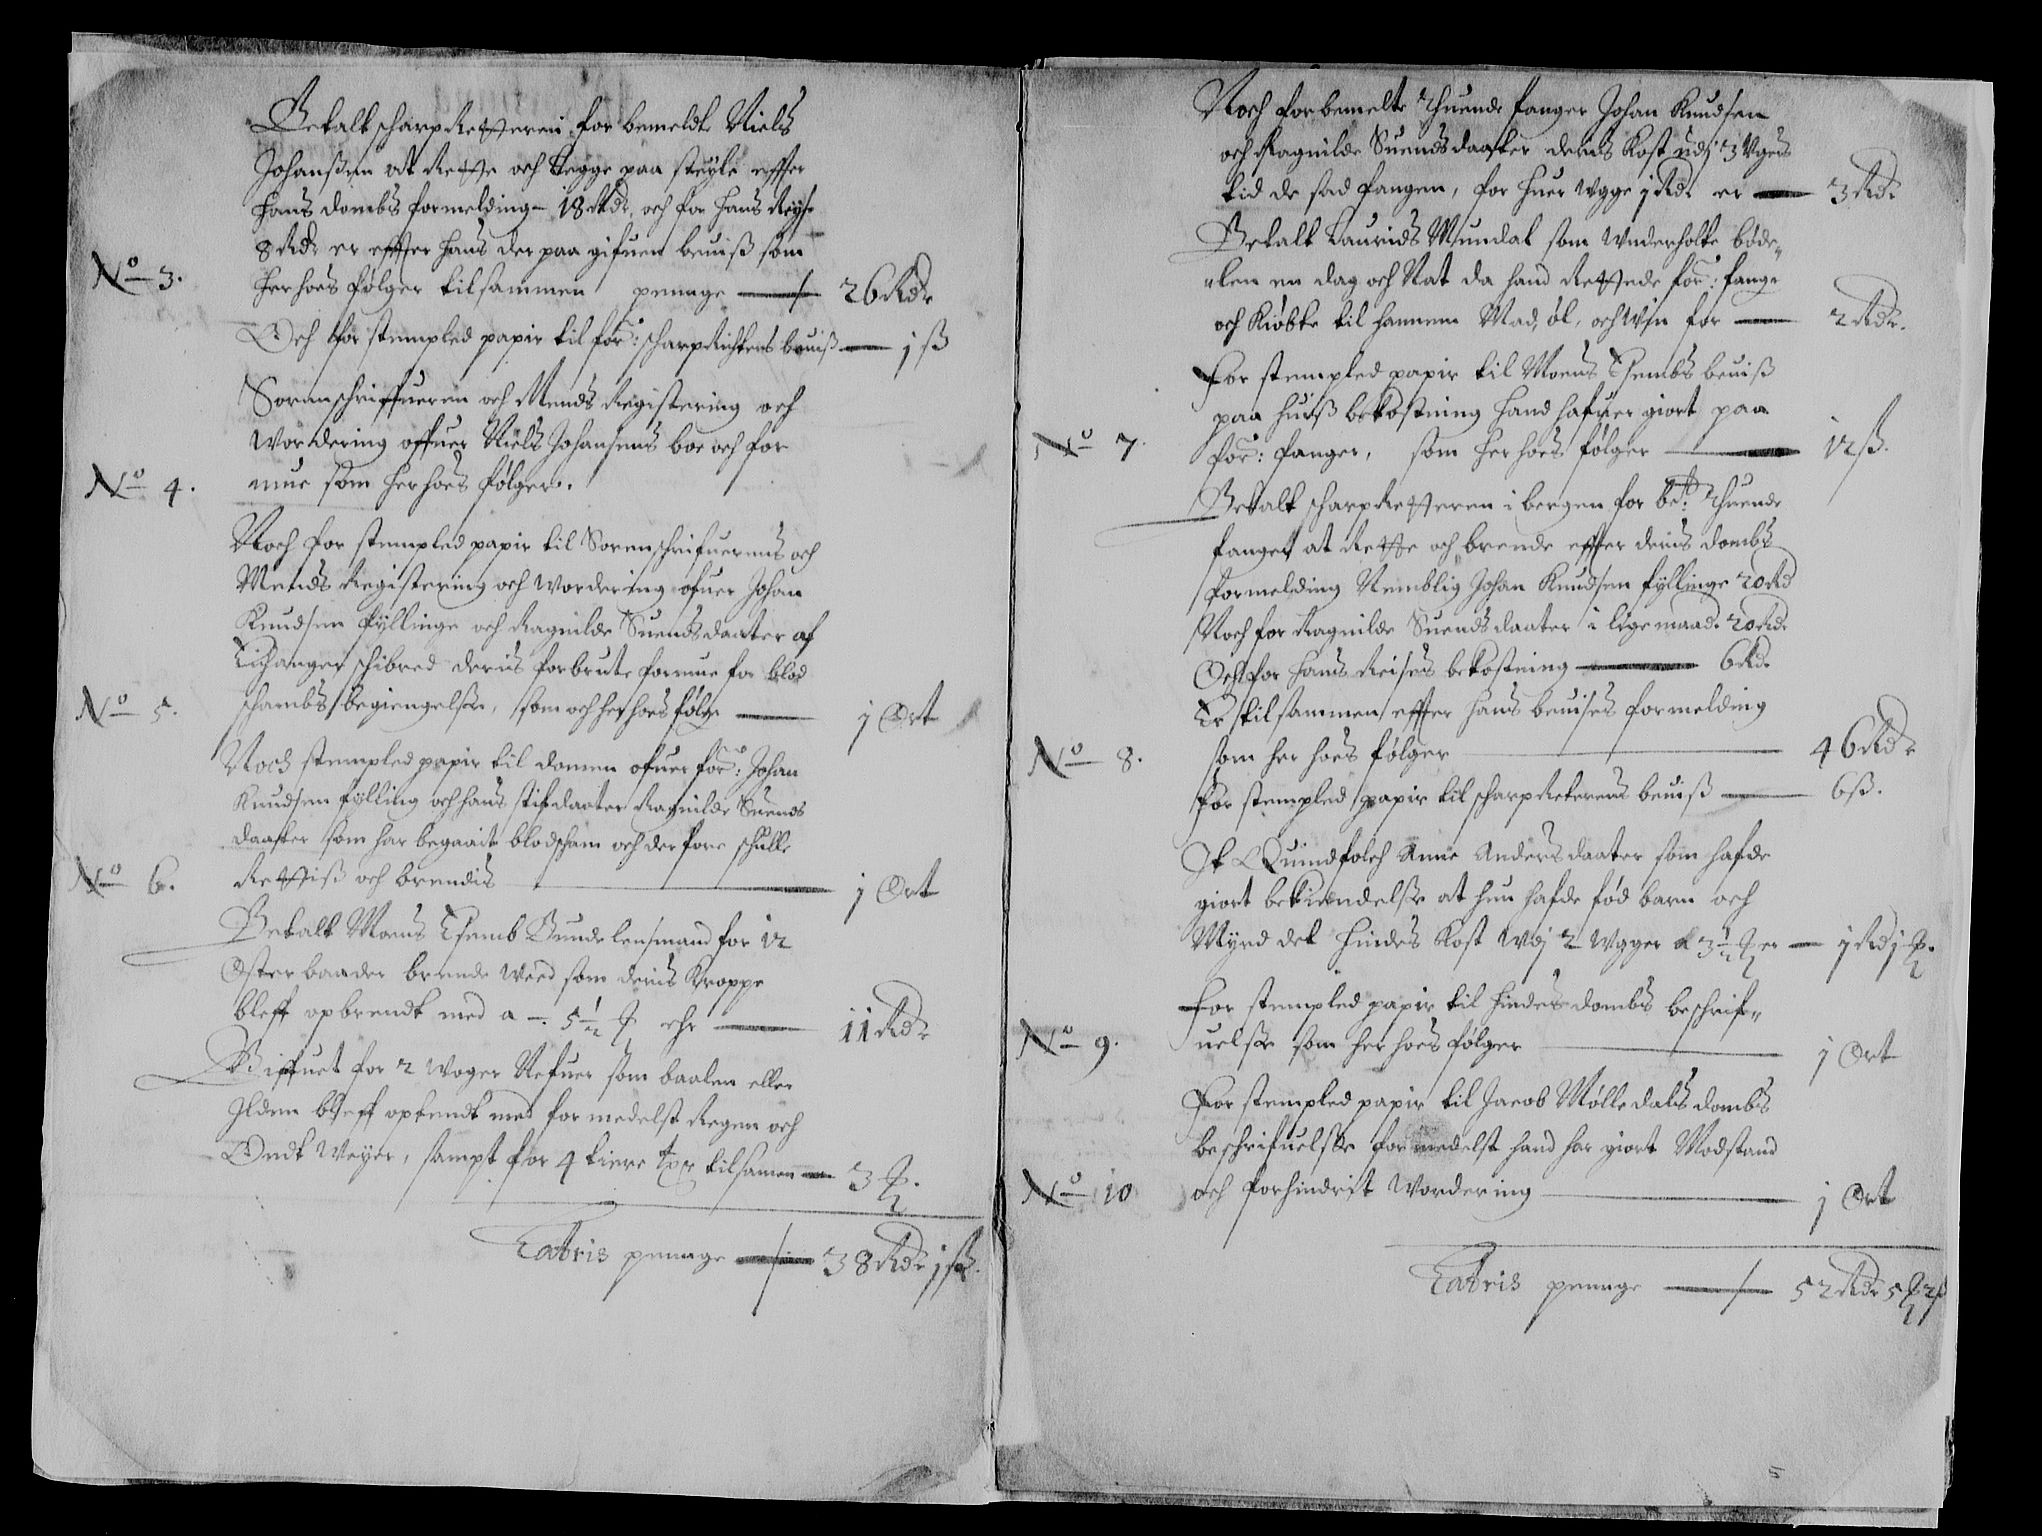 Betalt scharpRetteren for bemeldte Niels
Johanßen at Rette och Legge paa steyle effter
hans dombs formelding – 18 Rdr, och for hans Reyse
8 Rdr er effter hans der paa gifuen beuiß som
No 3. herhoes følger tilsammen penge — 26 Rdr
Och for stempled papir til for: scharpRichters beuiß — 1 ß
Sorenschriffueren och Mends Registering och
Wordering offuer Niels Johansens boe och for
No 4. mue som herhoes følger.
Noch for stempled papir til Sorenschrifuerens och
Mends Registering och Wordering ofuer Johan
Knudsen fyllinge och Ragnilde Suendsdaater af
schibred deris forbrute formue for blod
No 5. schambs begiengelsse, som och her hoes følge — 1 Ort
Noch stempled papir til domen ofuer for: Johan
Knudsen fylling och hans stifdaater Ragnilde Suends
daatter som har begaait blodscham och derfore schulle
No 6. Rettiß och brendis — 1 Ort
Betalt Moens Tsemb Bundelensmand for 12
Øster baader brende Weed som deris Kroppe
bleff opbrendt med a – 5 1/2 ehr — 11 Rdr
Giffuet for 2 Woger Nefuer som baalen eller
Jlden bleff optendt med formedelst Regen och
Ondt Weyer, sampt for 4 tiere tilsamen — 3
Latris penge — 38 Rdr 1 ß.
Noch forbemelte thuende fanger Johan Knudsen
och Ragnilde Suendsdaatter deris Kost udj 3 Vgers
tid de sad fangen, for huer Vgge 1 Rdr er — 3 Rdr
Betalt Laurids Mundal som Underholte bøde„
„len en dag och Nat da hand Rettede for: fange
och Kiøbte til hannem Mad, øl, och Win for — 2 Rdr.
For stempled papir til Moens Tsembs beuiß
paa huiß bekostning hand hafuer giort paa
No 7. for: fanger, som herhoes følger — 12 ß.
Betalt scharpRetteren i bergen for be:te thuende
fanger at Rette och brende effter deris dombs
formelding Nemblig Johan Knudsen fyllinge 20 Rd
Noch for Ragnilde Suendsdaater i lige maade 20 Rdr
Och for hans Reises bekostning — 6 Rd.
Er tilsammen effter hans beuises formelding
No 8. som her hoes følger — 46 Rdr
for stempled papir til scharpReterens beuiß — 6 ß.
It Quindfolch Anne Andersdaater som hafde
giort bekiendelsse at hun hafde fød barn och
Myrd det hindes Kost Wdj 2 Wgger a 3 1/2 er — 1 Rd 1
For stempled papir til hindes dombs beschrif„
No 9. uelsse som her hoes følger — 1 Ort
For stempled papir til Jacob Mølledals dombs
beschrifuelsse formedelst hand har giort Modstand
No 10 och forhindrit Wordering — 1 Ort
Latris penge — 52 Rdr 5 2 ß